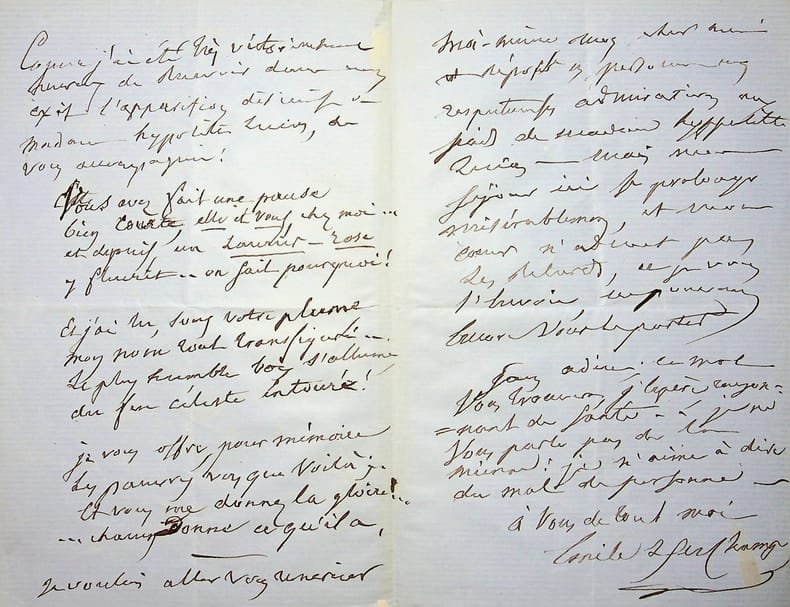 Comme j'ai été très victorieusement
heureux de recevoir dans mon
exil l'apparition de
madame hyppolite Lucas, de
vous accompagnée !
Vous avez fait une pause
bien courte, elle et vous chez moi...
et depuis, un Laurier-Rose
y fleurit... on sait pourquoi !
Et j'ai lu, sous votre plume
mon nom tout transfiguré...
Le plus humble bois s'allume
du feu céleste entouré !
je vous offre, pour mémoire
Les pauvres vers que voilà...
Et vous me donnez la gloire !..
... chacun Donne ce qu'il a,
je voulais aller vous remercier
moi-même mon cher ami
et déposer en personne mes
respectueuses admirations aux
pieds de madame hyppolite
Lucas — mais mon
séjour ici se prolonge
misérablement, et mon
cœur n'admet pas
Les retards, et je vous
l'envoie
Sans adieu. ce mot
Vous trouvera, j'espère rayon-
=nant de santé — je ne
Vous parle pas de la
mienne ! je n'aime à dire
du mal de personne —
à Vous de tout moi
Emile Deschamps